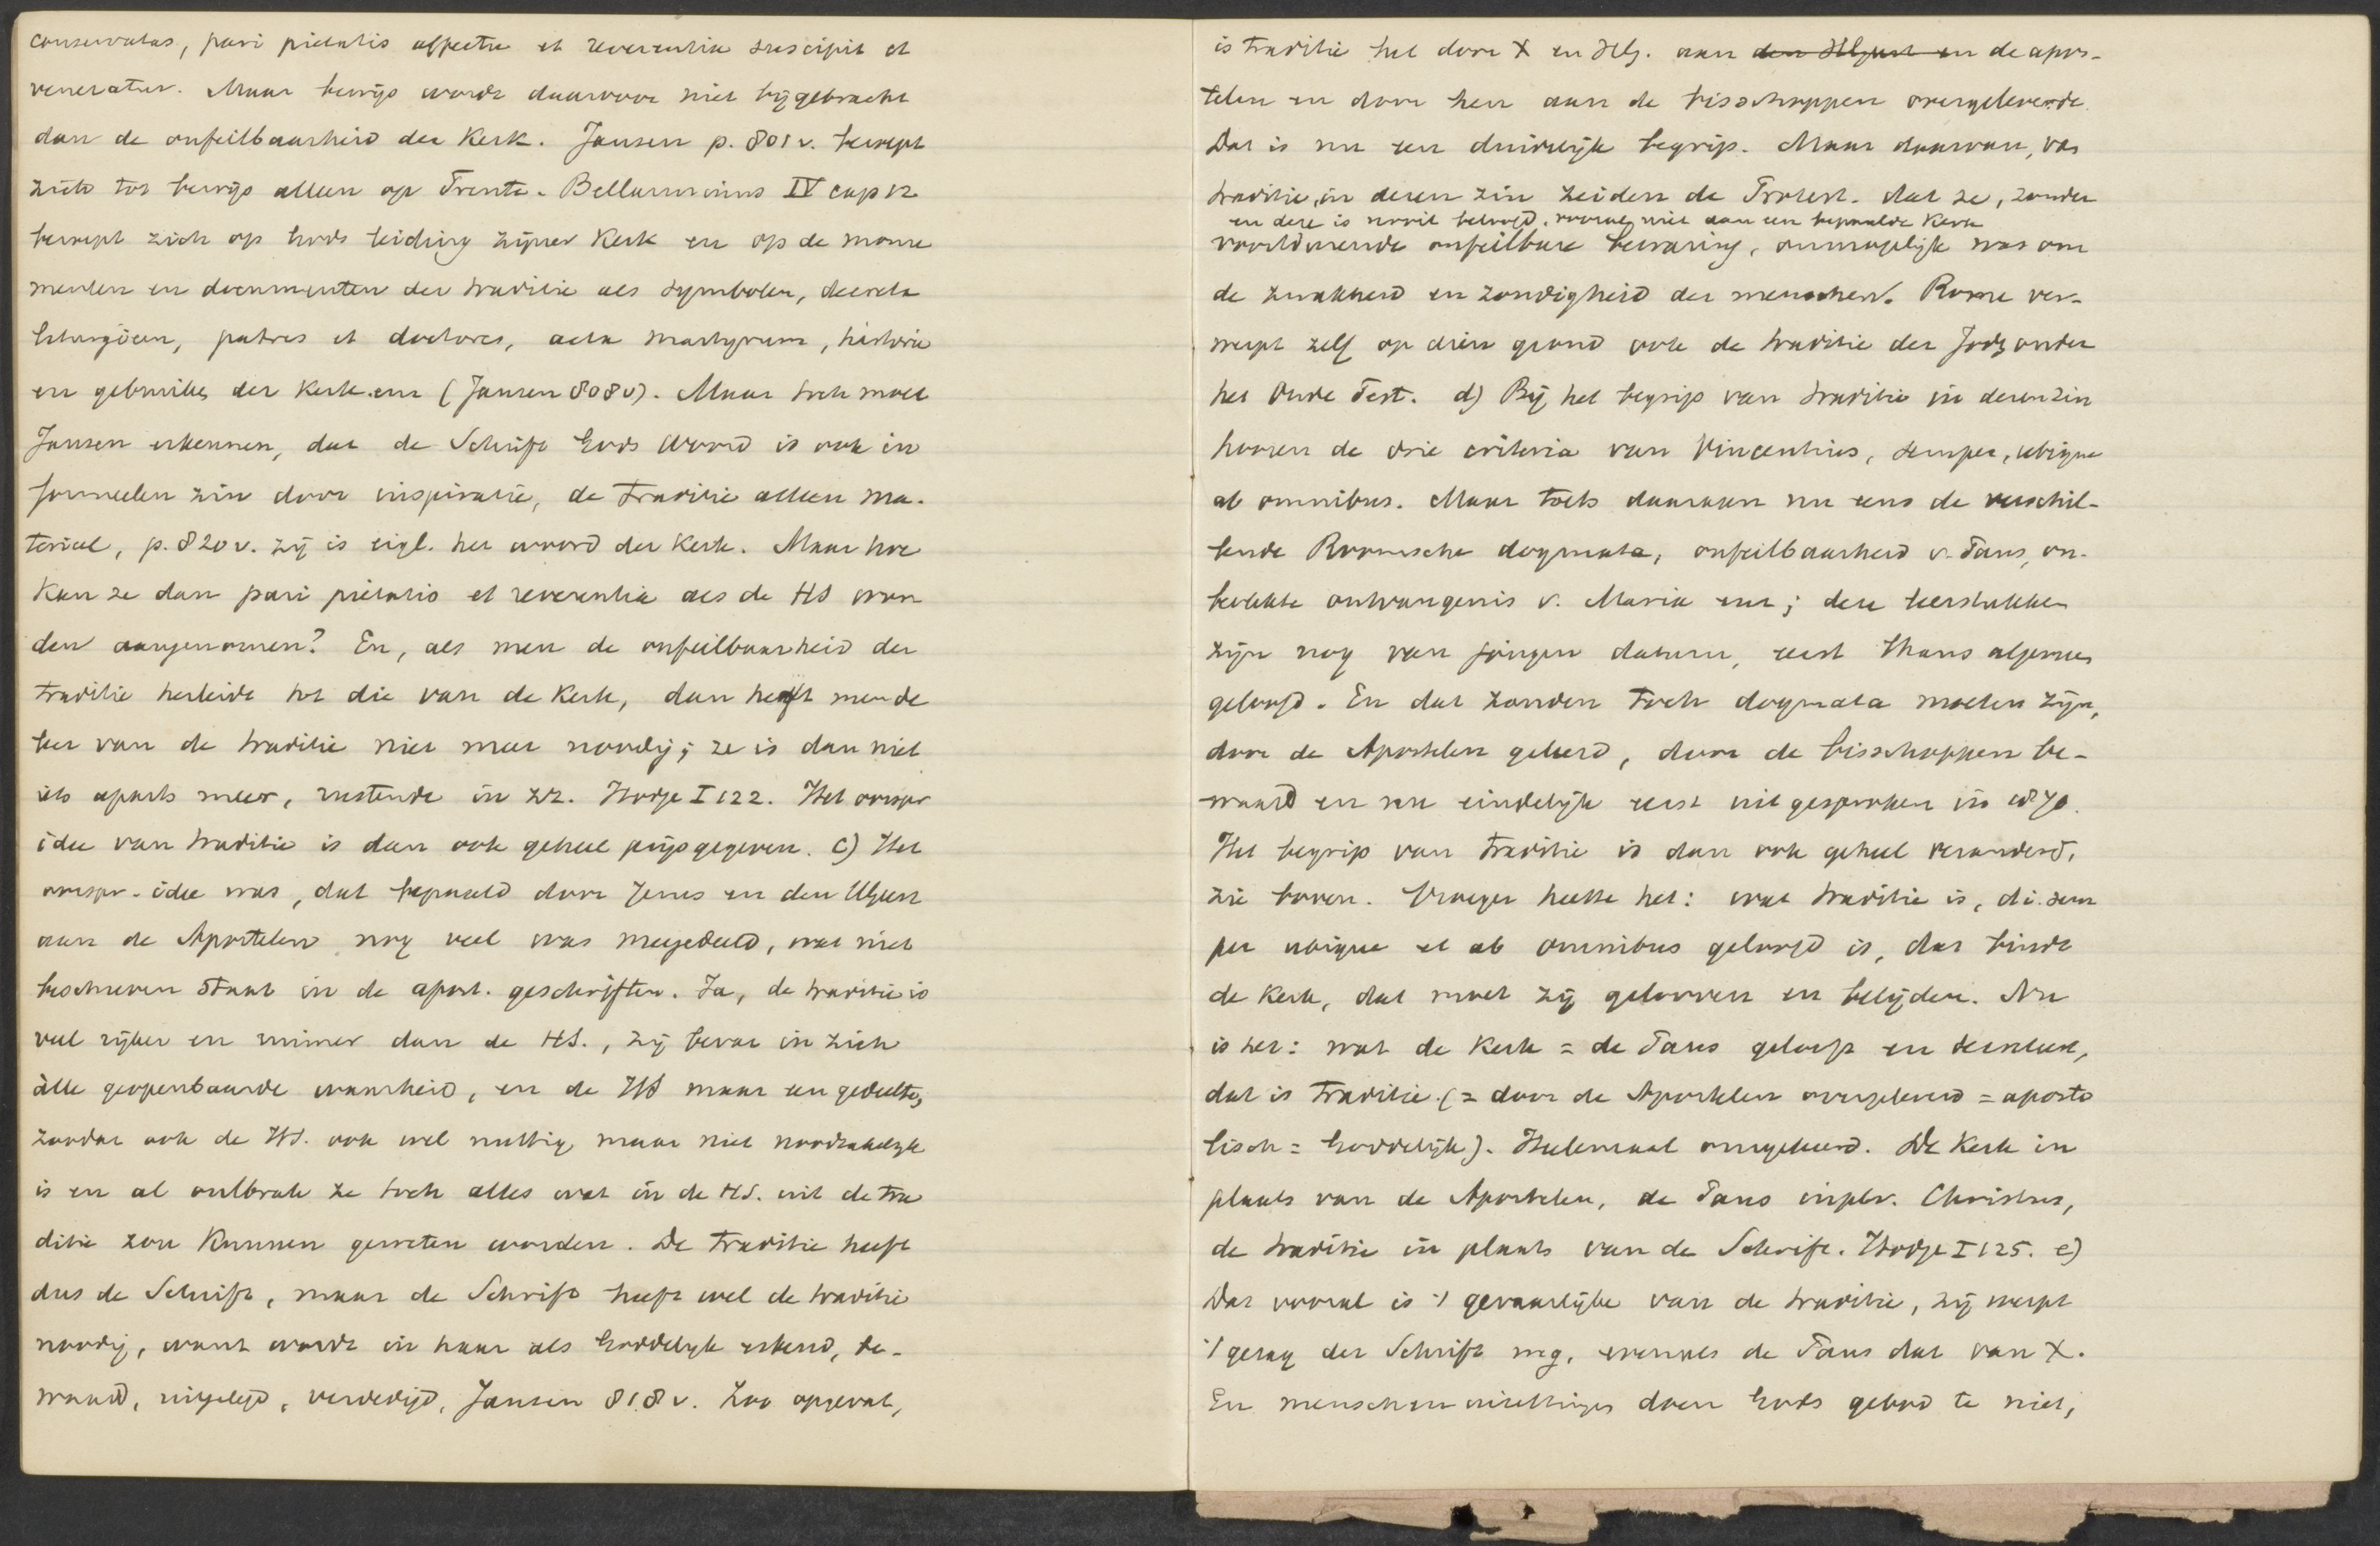 conservatas, pari pietatis affectu et reverentia suscipit et
veneratur. Maar bewijs wordt daarvoor niet bijgebracht
dan de onfeilbaarheid der Kerk. Jansen p. 801 v. beroept
zich tot bewijs alleen op Trente. Bellarminus IV cap 12
beroept zich op Gods leiding zijner Kerk en op de monu
menten en documenten der traditie als symbolen, decreta
liturgieen, patres et doctores, acta martyrum, historie
en gebruiken der Kerk enz (Jansen 808 v). Maar toch moet
Jansen erkennen, dat de Schrift Gods Woord is ook in
formeelen zin door inspiratie, de traditie alleen ma-
terieel, p. 820 v. zij is eigl. het woord der Kerk. Maar hoe
kan ze dan pari pietatis et reverentia als de HS wor
den aangenomen? En, als men de onfeilbaarheid der
traditie herleidt tot die van de Kerk, dan heeft men de
leer van de traditie niet meer noodig; ze is dan niet
iets aparts meer, rustende in zz. Hodge I 122. Het oorspr
idee van traditie is dan ook geheel prijsgegeven. c) Het
oorspr. idee was, dat bepaald door Jezus en den HGeest
aan de Apostelen nog veel was meegedeeld, wat niet
beschreven staat in de apost. geschriften. Ja, de traditie is
veel rijker en ruimer dan de HS., zij bevat in zich
àlle geopenbaarde waarheid, en de HS maar een gedeelte,
zoodat ook de HS. ook wel nuttig, maar niet noodzakelijk
is en al ontbrak ze toch alles wat in de HS. uit de tra
ditie zou kunnen geweten worden. De traditie heeft
dus de Schrift, maar de Schrift heeft wel de traditie
noodig, want wordt in haar als Goddelijk erkend, be-
waard, uitgelegd, verdedigd, Jansen 818 v. Zoo opgevat,
is traditie het door X en HG. aan den HGeest en de apos-
telen en door hen aan de bisschoppen overgeleverde.
Dat is nu een duidelijk begrip. Maar daarvan, van
traditie, in dezen zin zeiden de Protest. dat ze, zonder
en deze is nooit beloofd, vooral niet aan een bepaalde Kerk
voortdurende onfeilbare bewaring, onmogelijk was om
de zwakheid en zondigheid der menschen. Rome ver-
werpt zelf op dien grond ook de traditie der Jodn onder
het Oude Test. d) Bij het begrip van traditie in dezen zin
hooren de drie criteria van Vincentius, semper, ubique
ab omnibus. Maar toets daaraan nu eens de verschil-
lende Roomsche dogmata, onfeilbaarheid v. Paus, on-
bevlekte ontvangenis v. Maria enz; deze leerstukken
zijn nog van jongen datum, eerst thans algemeen
geloofd. En dat zouden toch dogmata moeten zijn,
door de Apostelen geleerd, door de bisschoppen be-
waard en nu eindelijk eerst uitgesproken in 1870.
Het begrip van traditie is dan ook geheel veranderd,
zie boven. Vroeger heette het: wat traditie is, d.i. sem
per ubique et ab omnibus geloofd is, dat bindt
de Kerk, dat moet zij gelooven en belijden. Nu
is het: wat de Kerk = de Paus gelooft en vaststelt,
dat is traditie (= door de Apostelen overgeleverd = aposto
lisch = Goddelijk). Heelemaal omgekeerd. De Kerk in
plaats van de Apostelen, de Paus in plv. Christus,
de traditie in plaats van de Schrift. Hodge I 125. e)
Dat vooral is 't gevaarlijke van de traditie, zij werpt
't gezag der Schrift weg, evenals de Paus dat van X.
En menschen inzettingen doen Gods gebod te niet,